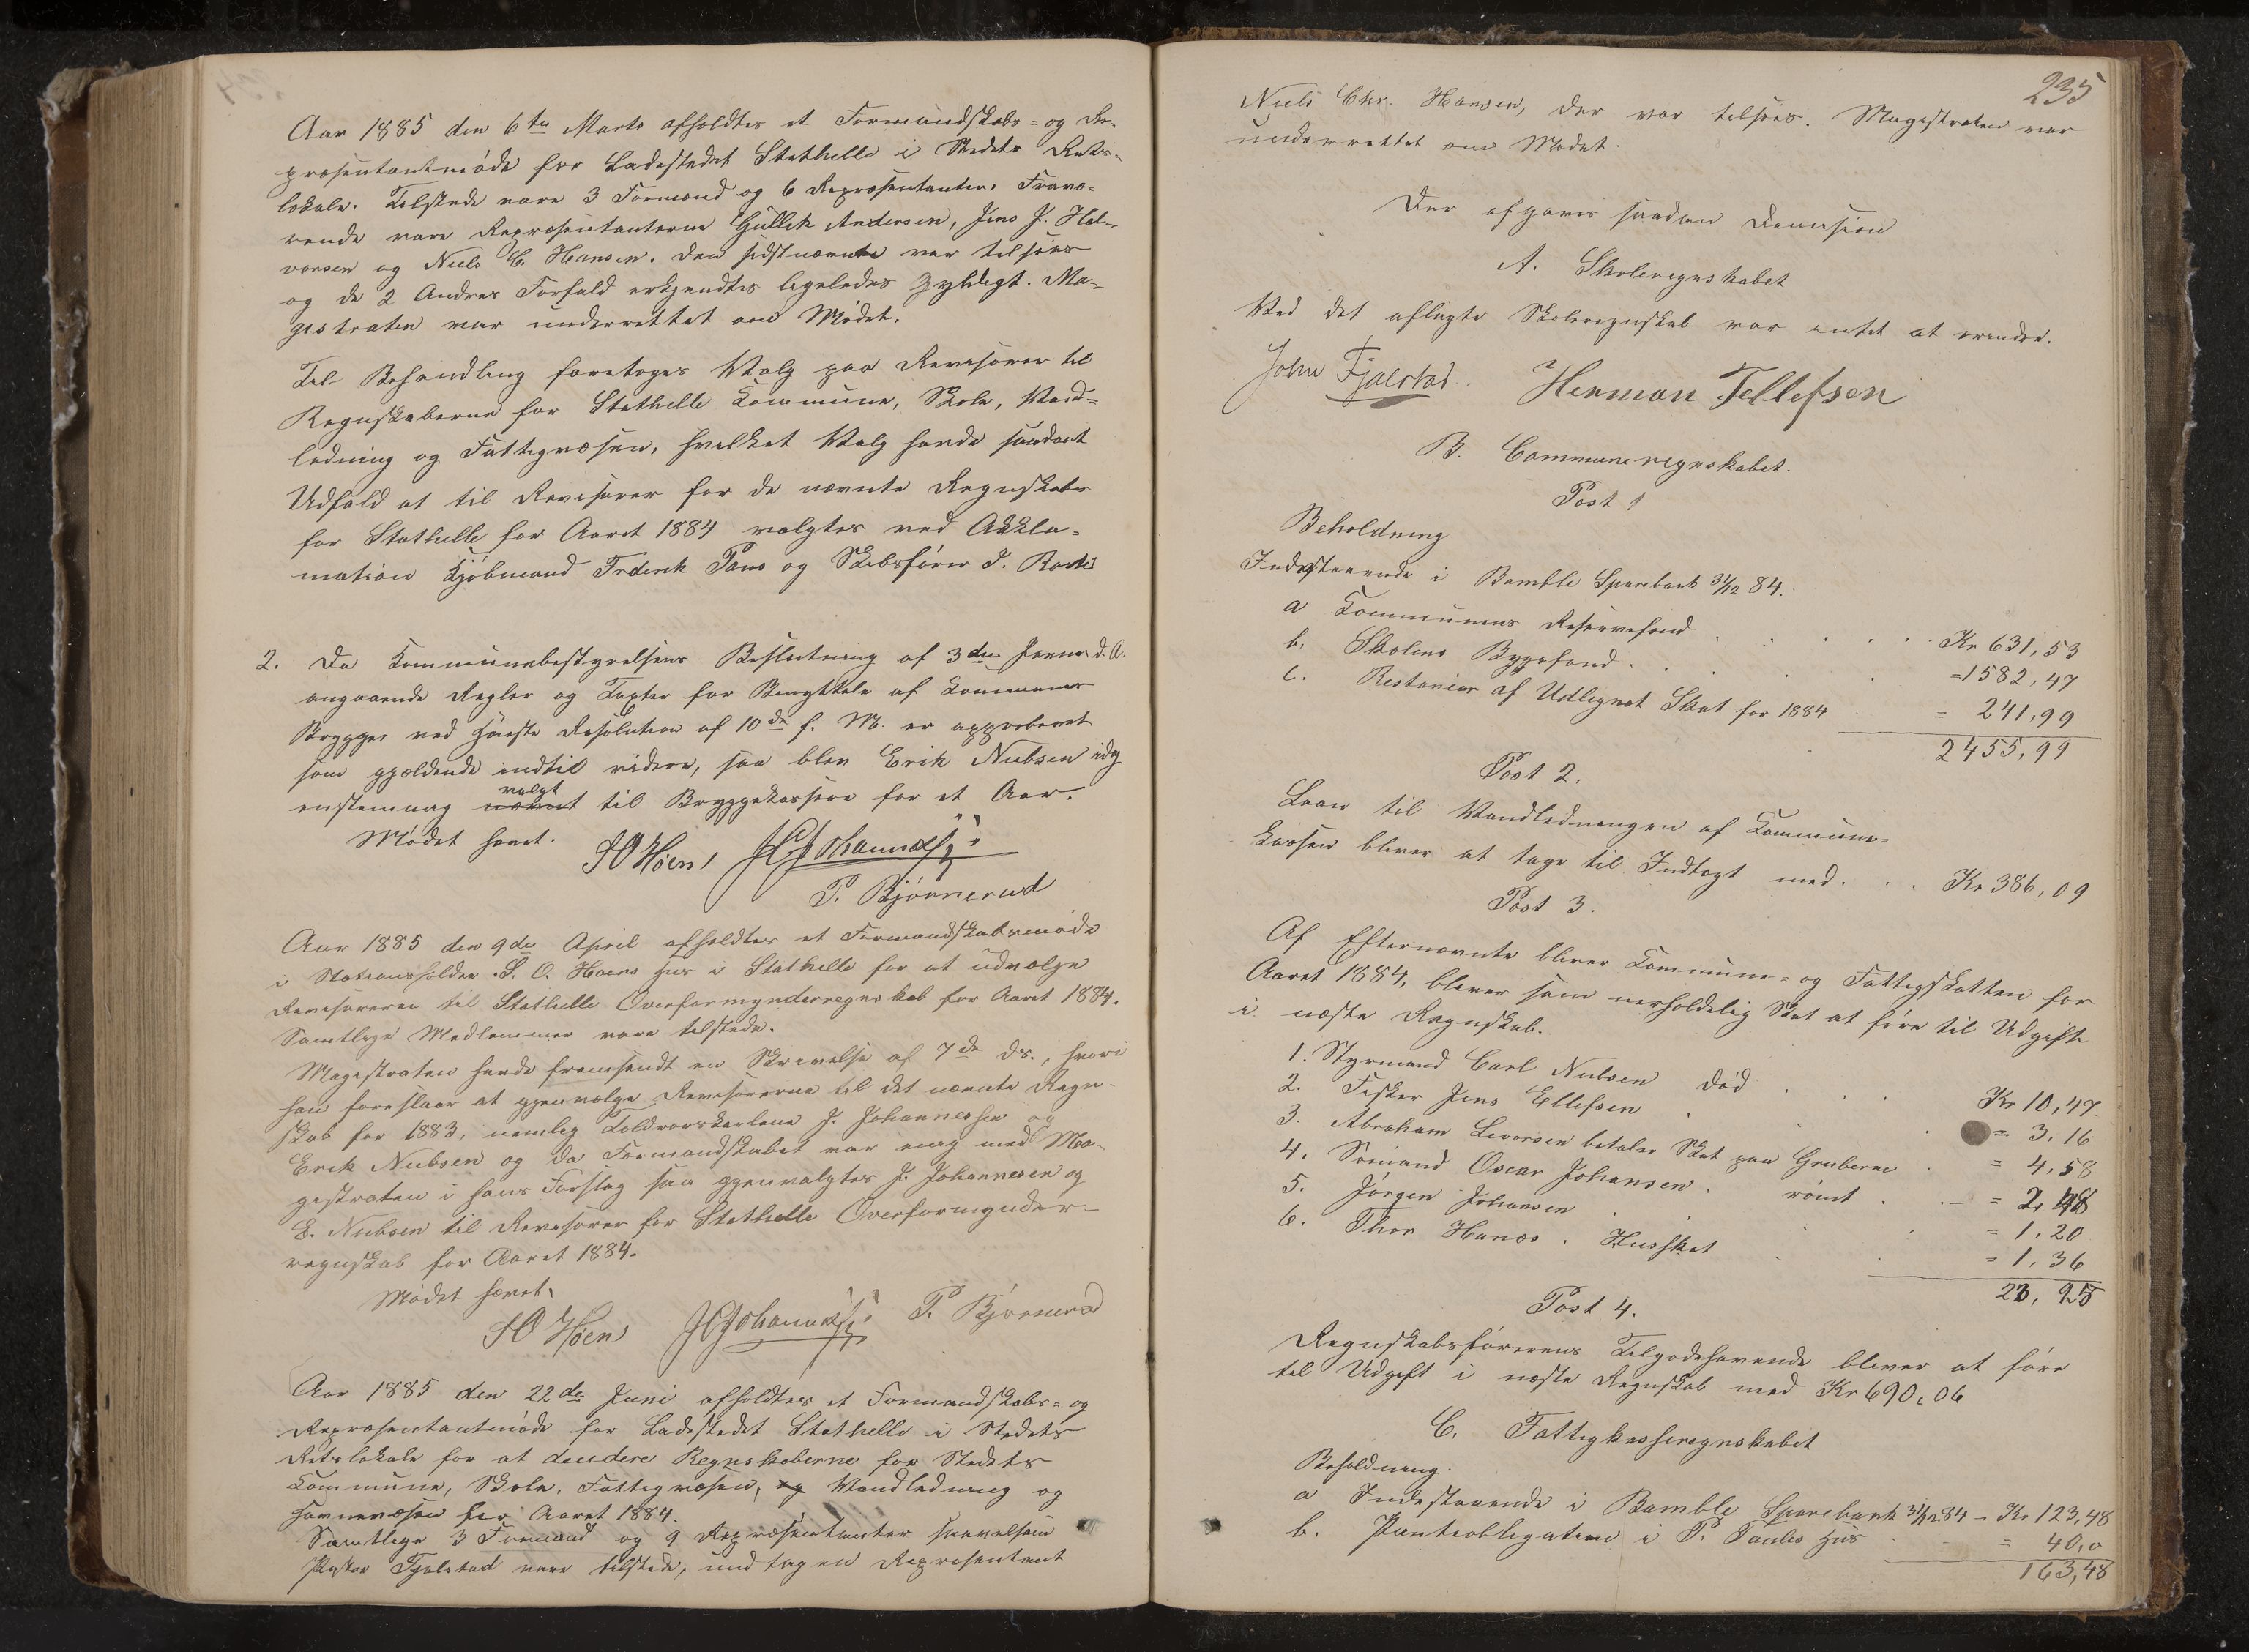 Aar 1885 den 6te Marts afholdtes et Formandskabs= og Re-
præsentantmøde for Ladestedet Stathelle i Stedets Rets-
lokale. Tilstede vare 3 Formænd og 6 Repræsentanter. Fravæ-
rende vare Repræsentanterne Gullik Andersen, Jens J. Hal-
vorsen og Niels C. Hansen. Den sidstnævnte var tilsjøs
og de 2 Andres Forfald erkjendtes ligeledes gyldigt. Ma-
gistraten var underrettet om Mødet.
Til Behandling foretoges Valg paa Revisorer til
Regnskaberne for Stathelle Kommune, Skole, Vand=
ledning og Fattigvæsen, hvilket Valg havde saadant
Udfald at til Revisorer for de nævnte Regnskaber
for Stathelle for Aaret 1884 valgtes ved Akkla-
mation Kjøbmand Frderik Paus og Skibsfører P.
2. Da Kommunebestyrelsens Beslutning af 3die Januar d. A.
angaaende Regler og Taxter for Benyttelse af Kommunens
Brygger ved høieste Resolution af 10de f. M. er approberet
som gjældende indtil videre, saa blev Erik Nielsen idag
enstemmig nævnt valgt til Bryggekasserer for et Aar.
Mødet hævet. SO Höen, JCJohannesen
P. Bjönnerud
Aar 1885 den 9de April afholdtes et Formandskabsmøde
i Stationsholder S. O. Höens Hus i Stathelle for at udvælge
Revisorerne til Stathelle Overformynderregnskab for Aaret 1884.
Samtlige Medlemmer vare tilstede.
Magistraten havde fremsendt en Skrivelse af 7de ds., hvori
han foreslaar at gjenvælge Revisorerne til det nævnte Regn-
skab for 1883, nemlig J. Johannessen og
Erik Nielsen og da Formandskabet var enig med Ma-
gistraten i hans Forslag saa gjenvalgtes J. Johannesen og
E. Nielsen til Revisorer for Stathelle Overformynder-
regnskab for Aaret 1884.
Mødet hævet.
SO Höen, JCJohannesen P. Bjönnerud
Aar 1885 den 22de Juni afholdtes et Formandskabs= og
Repræsentantmøde for Ladestedet Stathelle i Stedets
Retslokale for at decidere Regnskaberne for Stedets
Kommune, Skole, Fattigvæsen, og Vandledning og
Havnevæsen for Aaret 1884.
Samtlige 3 Formænd og 9 Repræsentanter saavelsom
Fjalstad vare tilstede, undtagen Repræsentant
235
Niels Chr. Hansen, der var tilsjøs. Magistraten var
underrettet om Mødet.
Der afgaves saadan Decision
A. Skoleregnskabet
Ved det aflagte Skoleregnskab var intet at erindre.
John Fjalstad. Herman Tellefsen
B. Communeregnskabet.
Post 1
Beholdning
Indestaaende i Bamble Sparebank 31/12 84.
a Kommunens Reservefond . . . . . Kr 631,53
b. Skolens Byggefond . . . =1582,47
c. Restancer af Udlignet Skat for 1884 = 241,99
2455,99
Post 2.
Laan til Vandledningen af Kommune=
kassen bliver at tage til Indtægt med . . . Kr 386,09
Post 3.
Af Efternævnte bliver Kommune= og Fattigskatten for
Aaret 1884, bliver som uerholdelig Skat at føre til Udgift
i næste Regnskab.
1. Styrmand Carl Nielsen død . . . Kr 10,47
2. Fisker Jens Ellefsen . . = 3.16
3. Abraham Levorsen betaler Skat paa Gruberne . = 4,58
4. Sömand Oscar Johansen . rømt . . = 2,48
5. Jörgen Johansen . . . = 1.20
6. Thor Hanes . Husskat . . = 1.36
23,25
Post 4.
Regnskabsførerens Tilgodehavende bliver at føre
til Udgift i næste Regnskab med Kr 690,06
C. Fattigkasseregnskabet
Beholdning.
a Indestaaende i Bamble Sparebank 31/12 84 - Kr 123,48
b. Panteobligation i P. Hus = 40,0
163,48